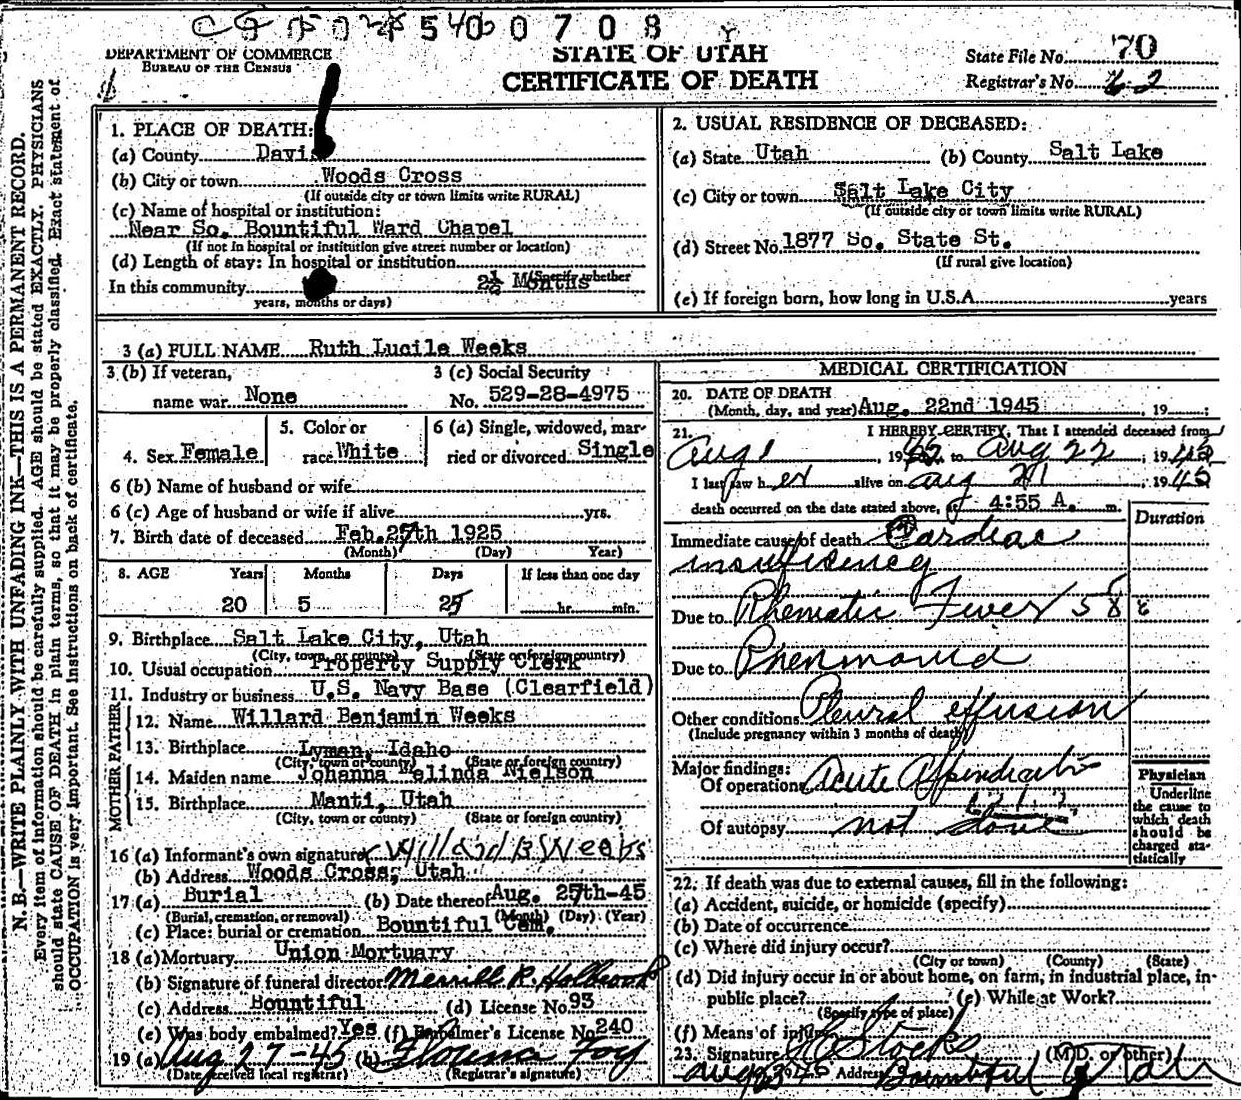 5 4 0 0 7 0 8
DEPARTMENT OF COMMERCE
BUREAU OF THE CENSUS
STATE OF UTAH
CERTIFICATE OF DEATH
State File No. 70
Registrar's No. 62
N.B.—WRITE PLAINLY WITH UNFADING INK—THIS IS A PERMANENT RECORD.
Every item of information should be carefully supplied. AGE should be stated EXACTLY. PHYSICIANS
should state CAUSE OF DEATH in plain terms, so that it may be properly classified. Exact statement of
OCCUPATION is very important. See instructions on back of certificate.
1. PLACE OF DEATH:
(a) County Davis
(b) City or town Woods Cross
(If outside city or town limits write RURAL)
(c) Name of hospital or institution:
Near So. Bountiful Ward Chapel
(If not in hospital or institution give street number or location)
(d) Length of stay: In hospital or institution
(Specify whether
In this community 2½ Months
years, months or days)
2. USUAL RESIDENCE OF DECEASED:
(a) State Utah (b) County Salt Lake
(c) City or town Salt Lake City
(If outside city or town limits write RURAL)
(d) Street No. 1877 So. State St.
(If rural give location)
(e) If foreign born, how long in U.S.A. years
3 (a) FULL NAME Ruth Lucile Weeks
3 (b) If veteran,
name war None
3 (c) Social Security
No. 529-28-4975
4. Sex Female
5. Color or
race White
6 (a) Single, widowed, mar-
ried or divorced Single
6 (b) Name of husband or wife
6 (c) Age of husband or wife if alive yrs.
7. Birth date of deceased Feb. 27th 1925
(Month) (Day) Year)
8. AGE Years Months Days If less than one day
20 5 25 hr. min.
9. Birthplace Salt Lake City, Utah
(City, town, or county) (State or foreign country)
10. Usual occupation Property Supply Clerk
11. Industry or business U.S. Navy Base (Clearfield)
FATHER
12. Name Willard Benjamin Weeks
13. Birthplace Lyman, Idaho
(City, town or county) (State or foreign country)
MOTHER
14. Maiden name Johanna Melinda Nielson
15. Birthplace Manti, Utah
(City, town or county) (State or foreign country)
16 (a) Informant's own signature Willard B Weeks
(b) Address Woods Cross, Utah
17 (a) Burial (b) Date thereof Aug. 25th-45
(Burial, cremation, or removal) (Month) (Day) (Year)
(c) Place: burial or cremation Bountiful Cem.
18 (a) Mortuary Union Mortuary
(b) Signature of funeral director Merrill R. Holbrook
(c) Address Bountiful (d) License No. 93
(e) Was body embalmed? Yes (f) Embalmer's License No. 240
19 (a) Aug 27-45 (b) Florence Foy
(Date received local registrar) (Registrar's signature)
MEDICAL CERTIFICATION
20. DATE OF DEATH
(Month, day, and year) Aug. 22nd 1945, 19 ;
21. I HEREBY CERTIFY, That I attended deceased from
Aug 1, 1945 to Aug 22, 1945
I last saw her alive on Aug 21, 1945
death occurred on the date stated above, at 4:55 A. m.
Duration
Immediate cause of death Cardiac
insuficiency
Due to Rhematic Fever
Due to Phenmonia
Other conditions Pleural effusion
(Include pregnancy within 3 months of death)
Major findings:
Of operation Acute Appendicitis
Of autopsy not done
Physician
Underline
the cause to
which death
should be
charged sta-
tistically
22. If death was due to external causes, fill in the following:
(a) Accident, suicide, or homicide (specify)
(b) Date of occurrence
(c) Where did injury occur?
(City or town) (County) (State)
(d) Did injury occur in or about home, on farm, in industrial place, in-
public place? (e) While at Work?
(Specify type of place)
(f) Means of injury
23. Signature Stocks (M.D. or other)
Address Bountiful Utah